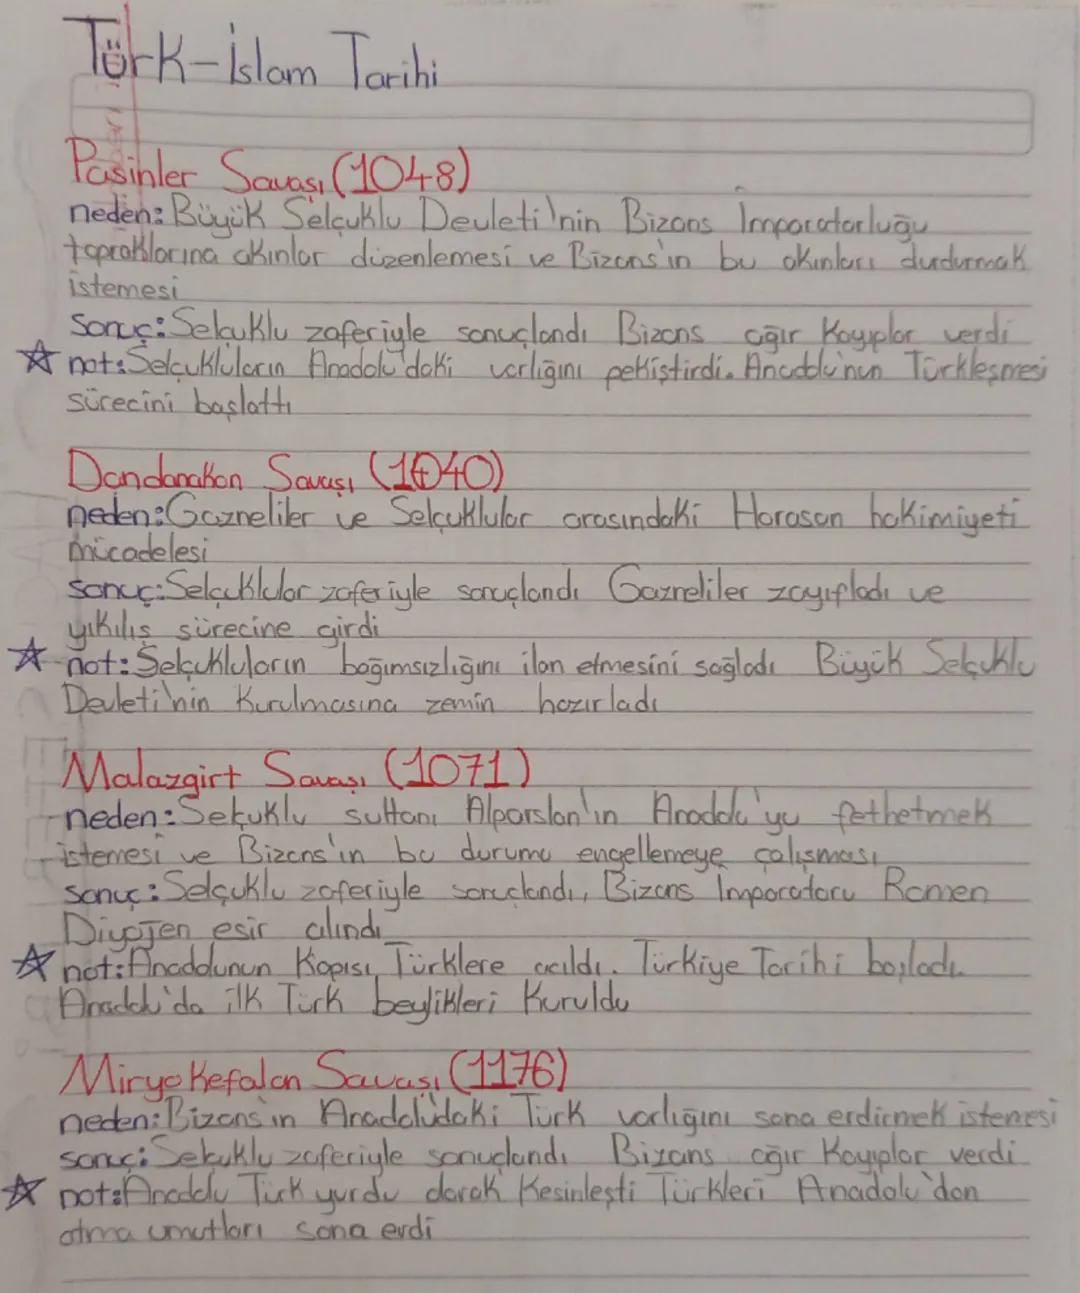 Türk-İslam Tarihi
Pasinler Savaşı (1048)
neden: Büyük Selçuklu Devleti'nin Bizans İmparatorluğu
topraklarına akınlar düzenlemesi ve Bizans'ın bu akınları durdurmak
istemesi
sonuç: Selçuklu zaferiyle sonuçlandı Bizans ağır kayıplar verdi
☆ not: Selçukluların Anadolu'daki varlığını pekiştirdi. Anadolu'nun Türkleşmesi
sürecini başlattı
Dandanakan Savaşı (1040)
neden: Gazneliler ve Selçuklular arasındaki Horosan hakimiyeti
mücadelesi
sonuç: Selçuklular zaferiyle sonuçlandı Gazneliler zayıfladı ve
yıkılış sürecine girdi
☆ not: Selçukluların bağımsızlığını ilan etmesini sağladı Büyük Selçuklu
Devleti'nin kurulmasına zemin hazırladı
Malazgirt Savaşı (1071)
neden: Selçuklu sultanı Alparslan'ın Anadolu'yu fethetmek
istemesi ve Bizans'ın bu durumu engellemeye çalışması
sonuç: Selçuklu zaferiyle sonuçlandı, Bizans İmparatoru Romen
Diyojen esir alındı
☆ not: Anadolunun kapısı Türklere açıldı. Türkiye Tarihi başladı.
Anadolu'da ilk Türk beylikleri kuruldu
Miryokefalon Savaşı (1176)
neden: Bizans'ın Anadolu'daki Türk varlığını sona erdirmek istemesi
sonuç: Selçuklu zaferiyle sonuçlandı Bizans ağır kayıplar verdi
☆ not: Anadolu Türk yurdu olarak kesinleşti Türkleri Anadolu'dan
atma umutları sona erdi